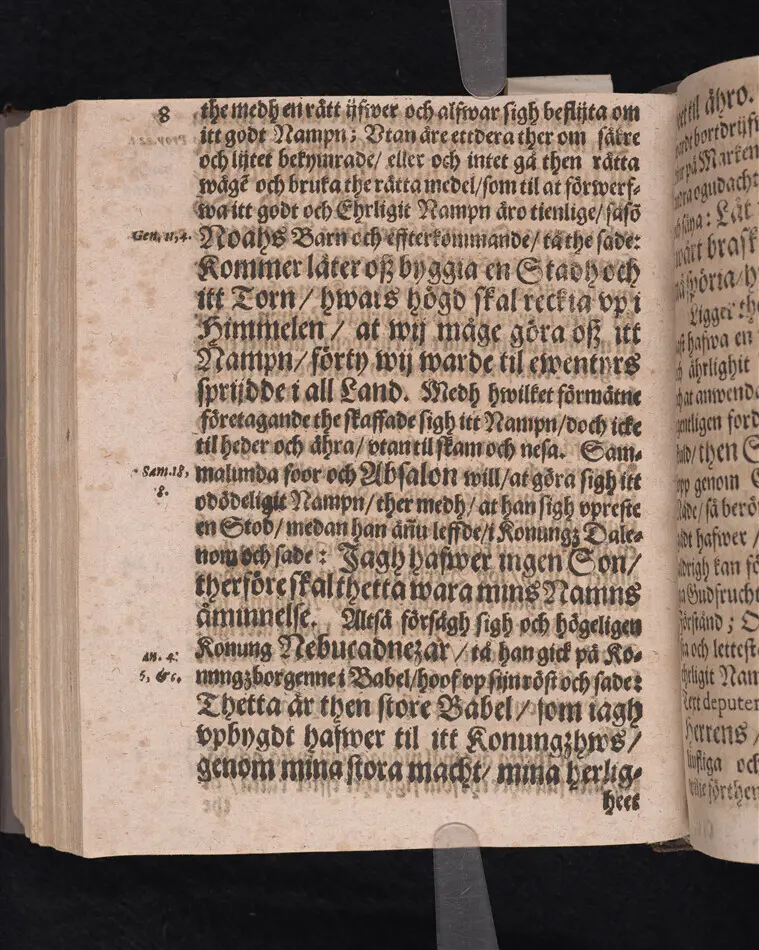 8
the medh en rätt ijfwer och alfwar sigh beflijta om
itt godt Nampn; Vtan äre ettdera ther om säkre
och lijtet bekymrade/ eller och intet gå then rätta
wägē och bruka the rätta medel/som til at förwerf-
wa itt godt och Ehrligit Nampn äro tienlige/ såsō
Gen. 11, 4.
Noahs Barn och effterkommande/ tå the sade:
Kommer låter oß byggia en Stadh och
itt Torn/ hwars högd skal reckia vp i
Himmelen/ at wij måge göra oß itt
Nampn/ förty wij warde til ewentyrs
sprijdde i all Land. Medh hwilket förmätne
företagande the skaffade sigh itt Nampn/doch icke
til heder och ähra/ vtan til skam och nesa. Sam-
Sam. 18,
8.
malunda foor och Absalon will/at göra sigh itt
odödeligit Nampn/ ther medh/ at han sigh vpreste
en Stod/ medan han äñu leffde/i Konungz Dale-
nom och sade: Jagh hafwer ingen Son/
therföre skal thetta wara mins Namns
åminnelse. Altså försågh sigh och högeligen
Konung Nebucadnezar/ tå han gick på Ko-
an. 4:
5, &c.
nungzborgenne i Babel/hoof vp sijn röst och sade:
Thetta är then store Babel/ som iagh
vpbygdt hafwer til itt Konungzhws/
genom mina stora macht/ mina herlig-
heet
til ähro.
bortdrijf
på Marken
ogudacht
: Låt
brask
spöria/h
Ligger th
hafwa en
ährlighit
at anwend
ntligen ford
/then S
genom
/ så berö
hafwer /
drigh kan fö
Gudfrucht
förstånd; O
och lettest
ligit Nam
deputer
Herrens /
och